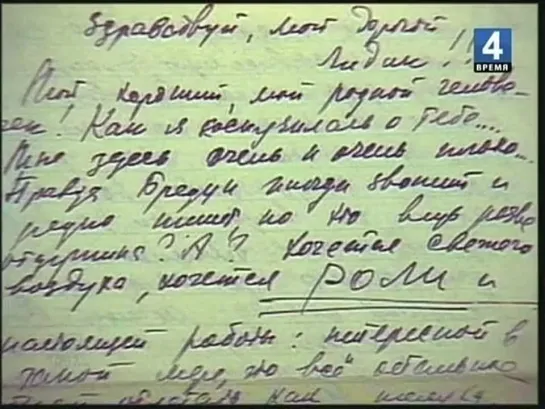 4
ВРЕМЯ
Здравствуй, мой дорогой
Лидик!!
Мой хороший, мой родной челове-
чек! Как я соскучилась о тебе....
Мне здесь очень и очень плохо...
Правда Бредун иногда звонит и
редко пишет, но это
отдушина? А? Хочется свежего
воздуха, хочется РОЛИ и
настоящей работы: интересной в
мере, это всё остальное
как